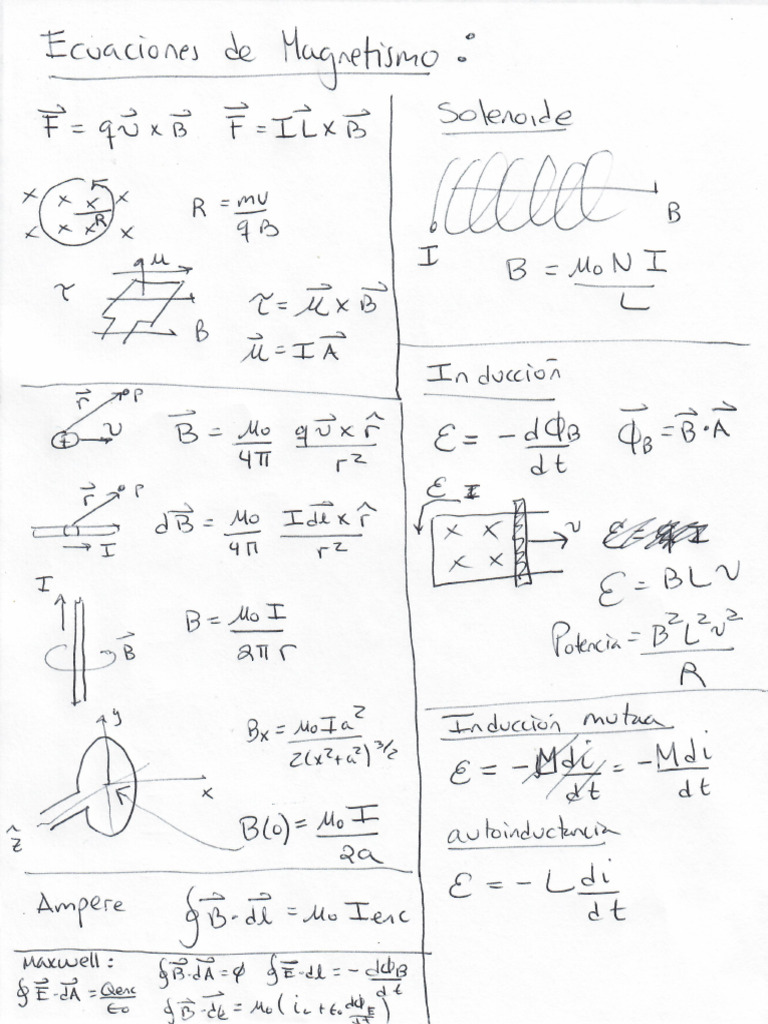 Ecuaciones de Magnetismo :
F⃗ = qv⃗ x B⃗   F⃗ = IL⃗ x B⃗
x x x x
R
x x x x
R = mv/qB
μ
τ
B
τ⃗ = μ⃗ x B⃗
μ⃗ = I A⃗
r⃗ P
+ v
B⃗ = μ₀/4π qv⃗ x r̂/r²
r⃗ P
I
dB⃗ = μ₀/4π Idl⃗ x r̂/r²
I
B⃗
B = μ₀ I/2π r
y
x
ẑ
Bx = μ₀ I a²/2(x²+a²)^3/2
B(0) = μ₀ I/2a
Ampere ∮B⃗·dl⃗ = μ₀ Ienc
Maxwell :
∮E⃗·dA⃗ = Qenc/ε₀
∮B⃗·dA⃗ = φ   ∮E⃗·dl = - dΦB/dt
∮B⃗·dl⃗ = μ₀(ic + ε₀ dφE/dt)
Solenoide
B
I
B = μ₀ N I/L
Inducción
ε = - dΦB/dt   Φ⃗B = B⃗·A⃗
ε I
x x
x x
v
ε = B L v
Potencia = B²L²v²/R
Inducción mutua
ε = - Mdi/dt = - Mdi/dt
autoinductancia
ε = - L di/dt